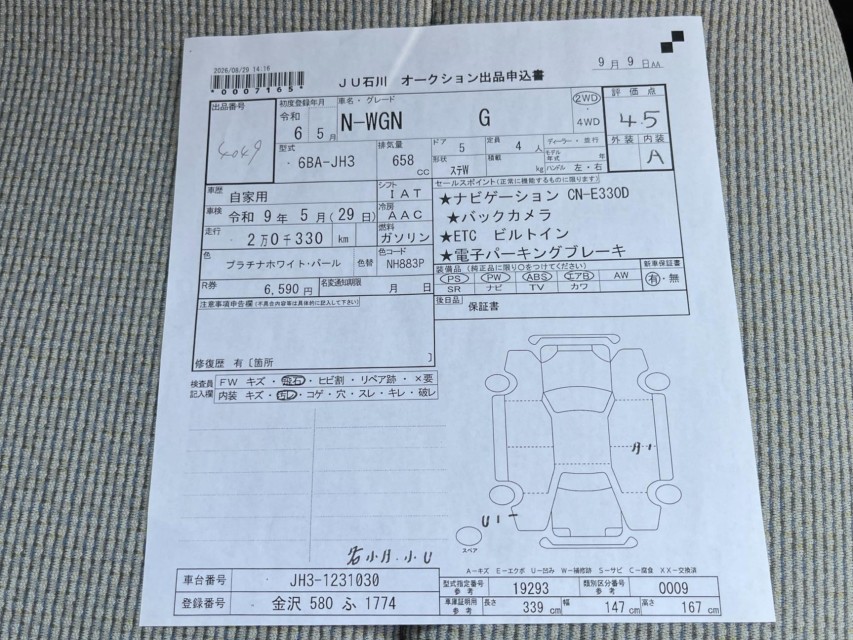 2026/08/29 14:16
*0007165*
JU石川 オークション出品申込書
9月 9日
出品番号
4049
初度登録年月
令和
6 5月
車名・グレード
N-WGN G
2WD
・
4WD
評価点
4.5
外装 内装
A
型式
6BA-JH3
排気量
658
cc
ドア
5
定員
4 人
形状
ステW
積載
kg
ディーラー・並行
モデル
年式 年
ハンドル 左・右
車歴
自家用
シフト
IAT
車検
令和 9年 5月(29日)
冷房
AAC
走行
2万0千330 km
燃料
ガソリン
色
プラチナホワイト・パール
色替
色コード
NH883P
R券
6,590 円
名変通知期限
月 日
セールスポイント(正常に機能するものに限ります)
★ナビゲーション CN-E330D
★バックカメラ
★ETC ビルトイン
★電子パーキングブレーキ
装備品(純正品に限り○をつけてください)
PS PW ABS エアB AW
SR ナビ TV カワ
新車保証書
有・無
後日品
保証書
注意事項申告欄(不具合内容等は具体的に記入して下さい)
修復歴 有〔箇所 〕
検査員
記入欄
FW キズ・飛石・ヒビ割・リペア跡・×要
内装 キズ・汚レ・コゲ・穴・スレ・キレ・破レ
U1
スペア
A-キズ E-エクボ U-凹み W-補修跡 S-サビ C-腐食 XX-交換済
車台番号
JH3-1231030
登録番号
金沢 580 ふ 1774
型式指定番号
参考
19293
類別区分番号
参考
0009
車庫証明用
参考
長さ
339 cm
幅
147 cm
高さ
167 cm